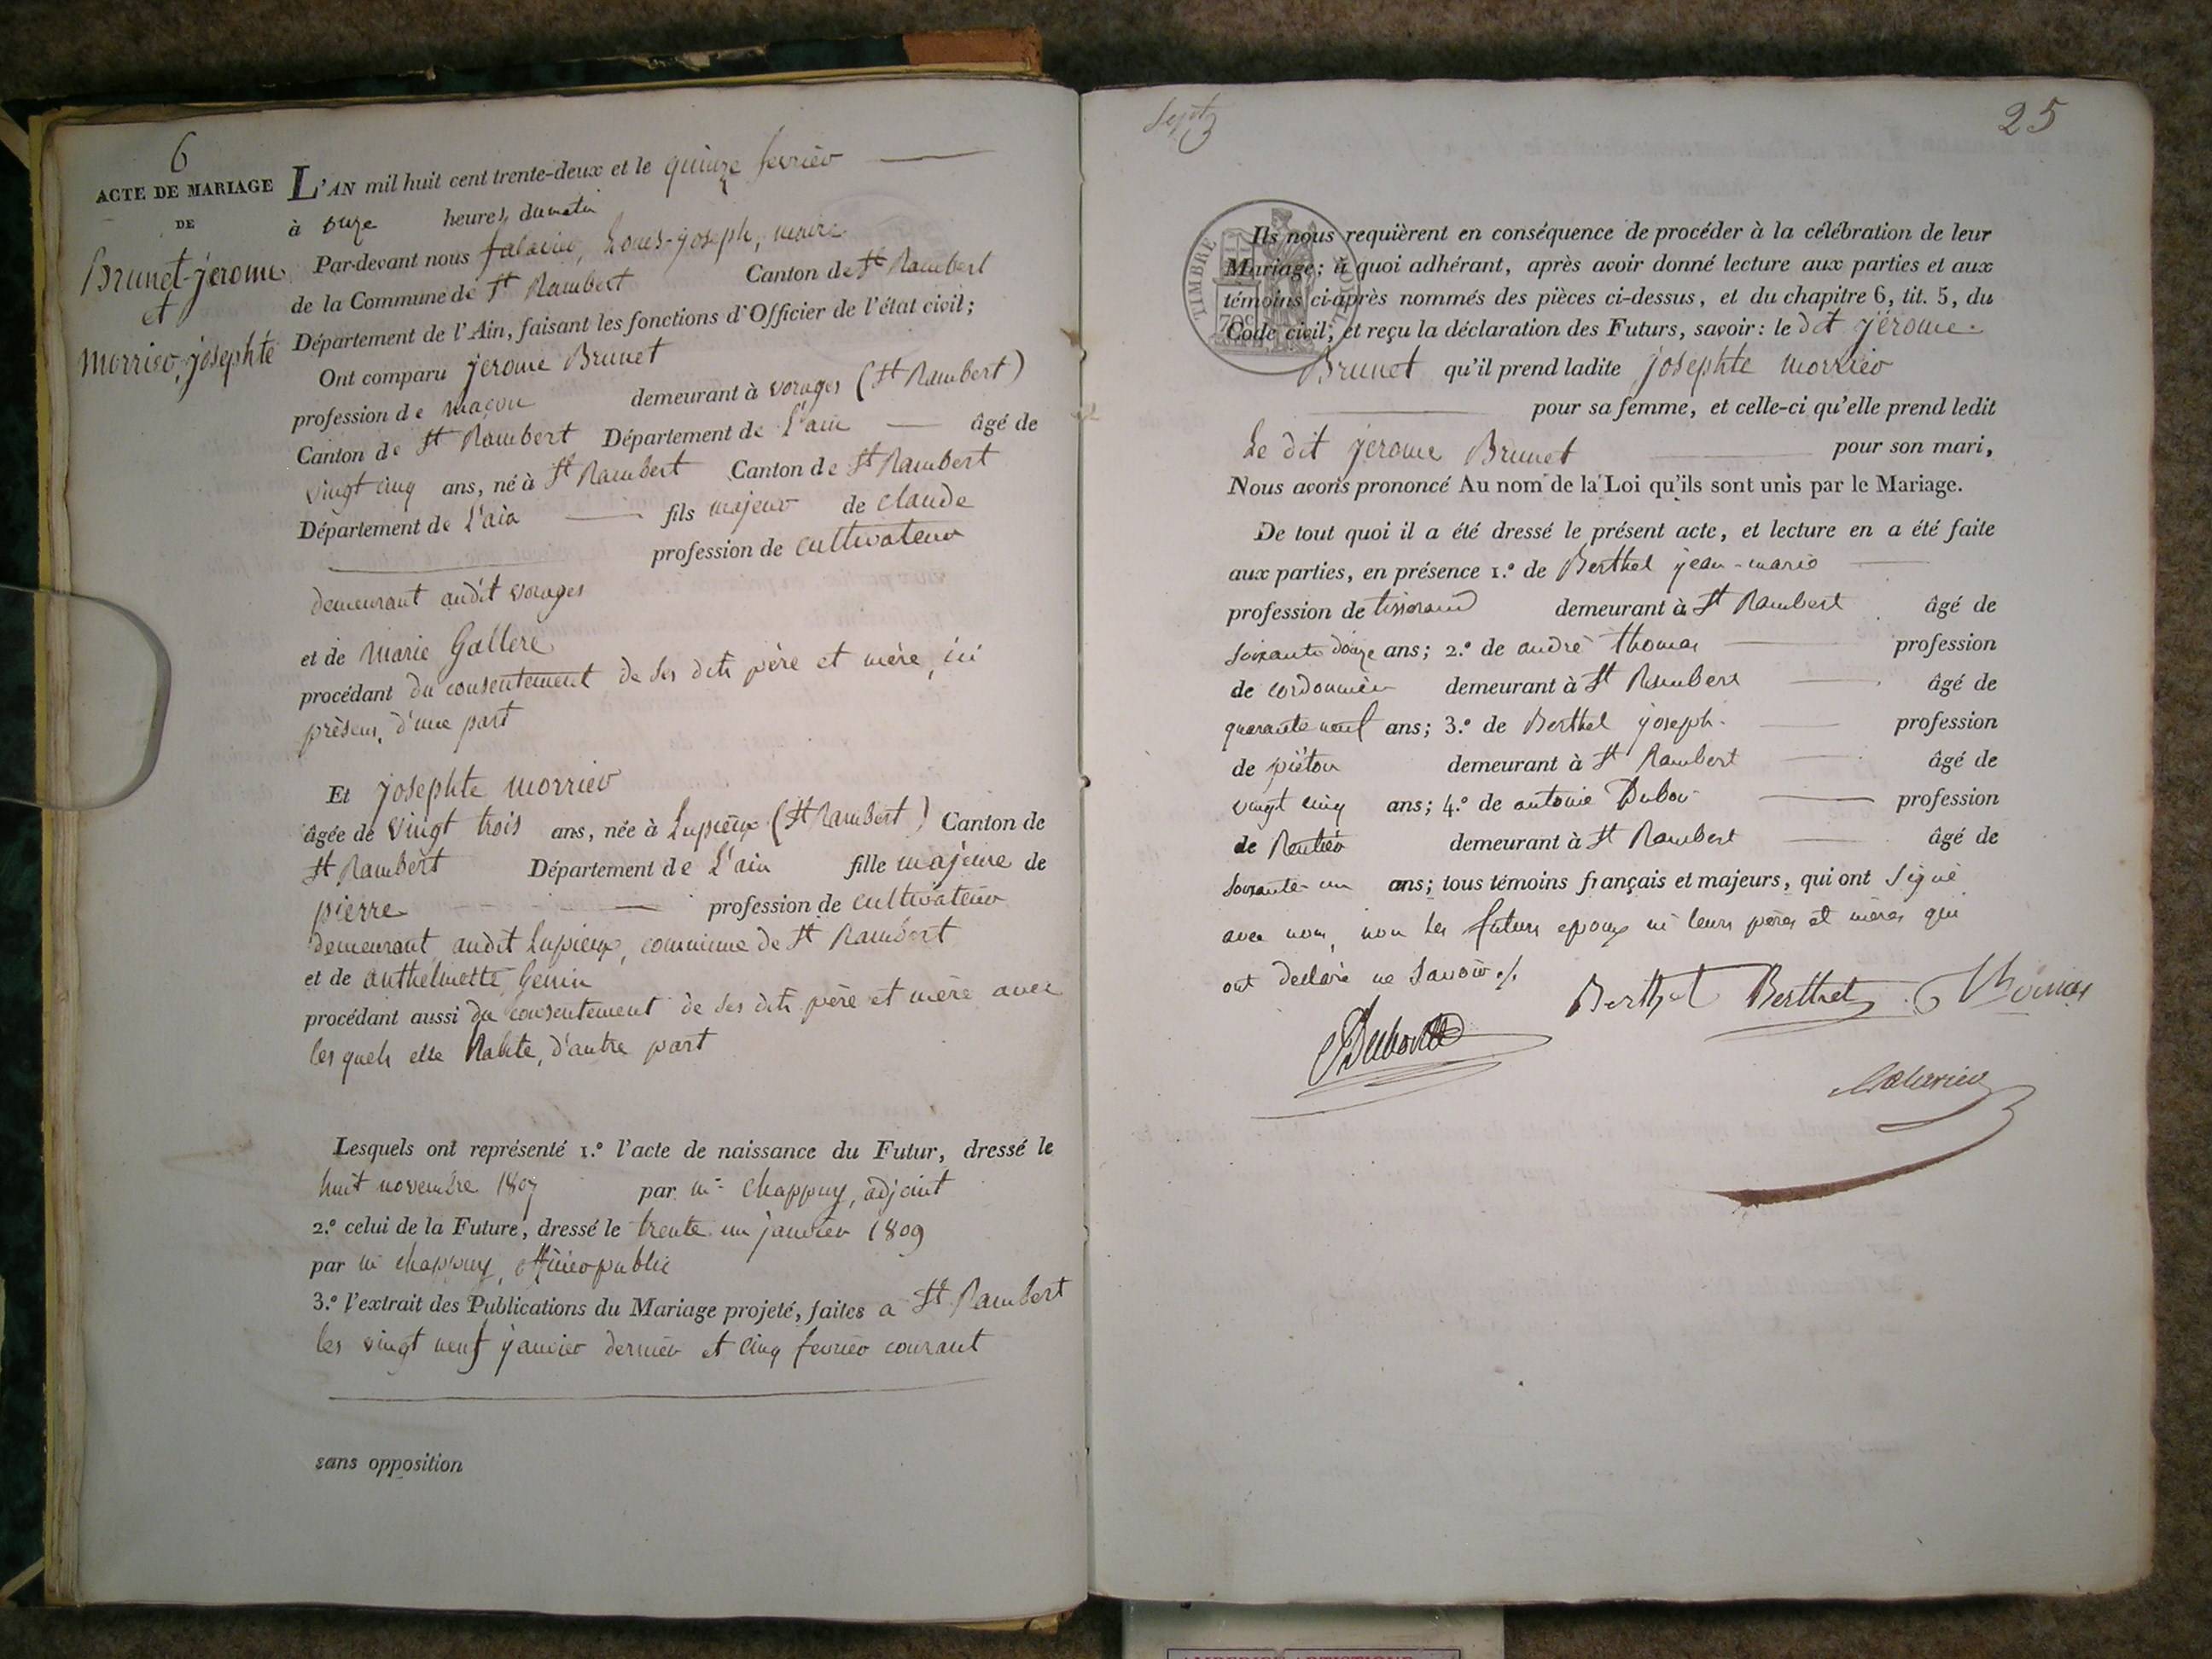 6
ACTE DE MARIAGE
DE
Brunet-jerome
et
Morrier, josephte
L'AN mil huit cent trente-deux et le quinze fevrier
à onze heures du matin
Par-devant nous Louis-joseph, maire
de la Commune de St Rambert Canton de St Rambert
Département de l'Ain, faisant les fonctions d'Officier de l'état civil;
Ont comparu jerome Brunet
profession de maçon demeurant à vorages (St Rambert)
Canton de St Rambert Département de L'ain âgé de
vingt cinq ans, né à St Rambert Canton de St Rambert
Département de L'ain fils majeur de claude
profession de cultivateur
demeurant audit vorages
et de Marie Gallere
procédant du consentement de ses dits père et mère, ici
présens, d'une part
Et josephte morrier
âgée de vingt trois ans, née à Lupieux (St Rambert) Canton de
St Rambert Département de L'ain fille majeure de
pierre profession de cultivateur
demeurant audit lupieux, commune de St Rambert
et de anthelmette Genin
procédant aussi du consentement de ses dits père et mère avec
lesquels elle habite, d'autre part
Lesquels ont représenté 1.º l'acte de naissance du Futur, dressé le
huit novembre 1807 par mr chappuy, adjoint
2.º celui de la Future, dressé le trente un janvier 1809
par mr chappuy, officier public
3.º l'extrait des Publications du Mariage projeté, faites a St Rambert
les vingt neuf janvier dernier et cinq fevrier courant
sans opposition
Sept
25
TIMBRE
70c
Ils nous requièrent en conséquence de procéder à la célébration de leur
Mariage; à quoi adhérant, après avoir donné lecture aux parties et aux
témoins ci-après nommés des pièces ci-dessus, et du chapitre 6, tit. 5, du
Code civil; et reçu la déclaration des Futurs, savoir: le dit jérome
Brunet qu'il prend ladite josephte morrier
pour sa femme, et celle-ci qu'elle prend ledit
Le dit jerome Brunet pour son mari,
Nous avons prononcé Au nom de la Loi qu'ils sont unis par le Mariage.
De tout quoi il a été dressé le présent acte, et lecture en a été faite
aux parties, en présence 1.º de Berthet jean-marie
profession de tisserand demeurant à St Rambert âgé de
soixante douze ans; 2.º de andré thomas profession
de cordonnier demeurant à St Rambert âgé de
quarante neuf ans; 3.º de Berthet joseph profession
de piéton demeurant à St Rambert âgé de
vingt cinq ans; 4.º de antoine Dubois profession
de Rentier demeurant à St Rambert âgé de
soixante un ans; tous témoins français et majeurs, qui ont signé
avec nous, non les futurs epoux ni leurs pères et mères qui
ont declaré ne savoir ./.
Berthet Berthet Thomas